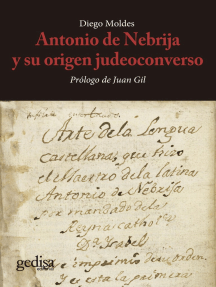 Diego Moldes
Antonio de Nebrija
y su origen judeoconverso
Prólogo de Juan Gil
Arte de la Lengua
Castellana, que hizo
el Maestro de la latina
Antonio de Nebrija
Por mandado de la
Reyna cathol.ca
D.ª Isabel
e imprimio de orden
Y es esta la primera
gedisa
editorial